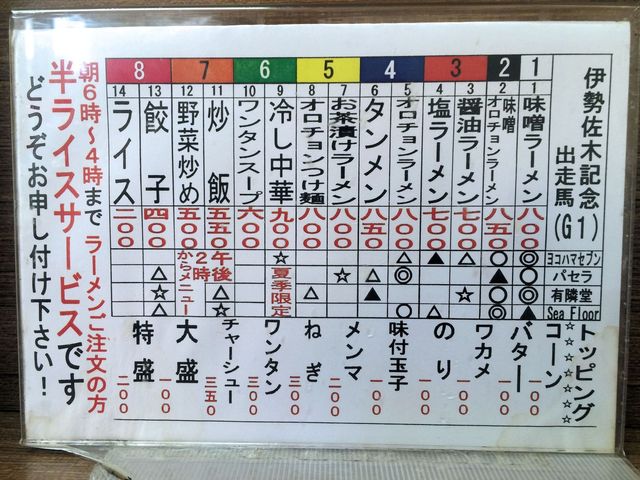 伊勢佐木記念
出走馬(G1)
1 2 3 4 5 6 7 8
1 味噌ラーメン 八〇〇
2 味噌オロチョンラーメン 八五〇
3 醤油ラーメン 七〇〇
4 塩ラーメン 七〇〇
5 オロチョンラーメン 八〇〇
6 タンメン 八五〇
7 お茶漬けラーメン 八〇〇
8 オロチョンつけ麺 八〇〇
9 冷し中華 九〇〇
夏季限定
10 ワンタンスープ 六〇〇
11 炒飯 五五〇
12 野菜炒め 五〇〇
午後
2時
からメニュー
13 餃子 四〇〇
14 ライス 二〇〇
ヨコハマセブン ◎ ○ ▲ △ ☆
パセラ ○ ▲ ◎ △ ☆ △
有隣堂 ◎ ○ ☆ ▲ △ △ ☆
Sea Floor ▲ ○ △ ○ ☆ △
☆☆トッピング☆☆
コーン 一〇〇
バター 一〇〇
ワカメ 一〇〇
のり 一〇〇
味付玉子 一〇〇
メンマ 二〇〇
ねぎ 三〇〇
ワンタン 三〇〇
チャーシュー 三五〇
大盛 一〇〇
特盛 二〇〇
朝6時～4時まで ラーメンご注文の方
半ライスサービスです
どうぞお申し付け下さい！